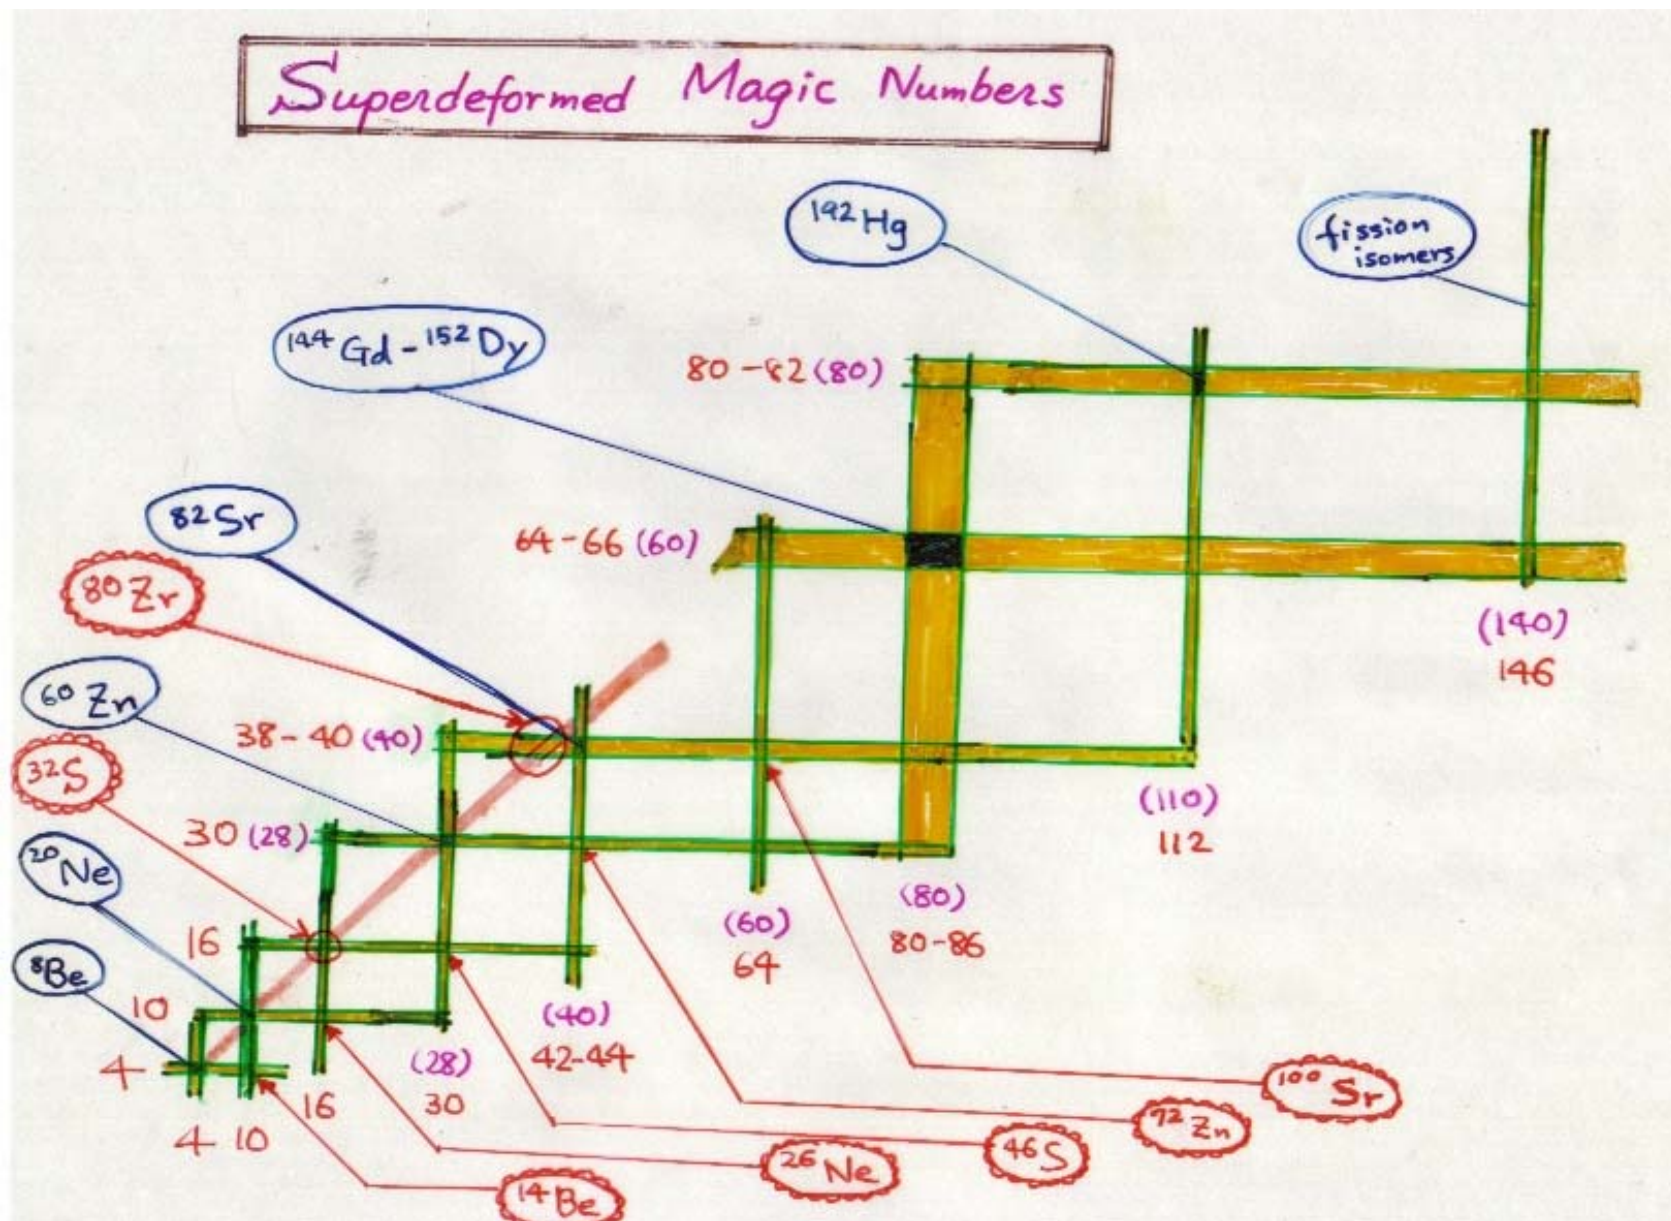 Superdeformed Magic Numbers
192Hg
fission
isomers
144Gd-152Dy
80-82 (80)
82Sr
64-66 (60)
80Zr
(140)
146
60Zn
38-40 (40)
32S
(110)
112
30 (28)
20Ne
(80)
80-86
(60)
64
16
8Be
10
(40)
42-44
(28)
30
4
16
4 10
100Sr
72Zn
46S
26Ne
14Be